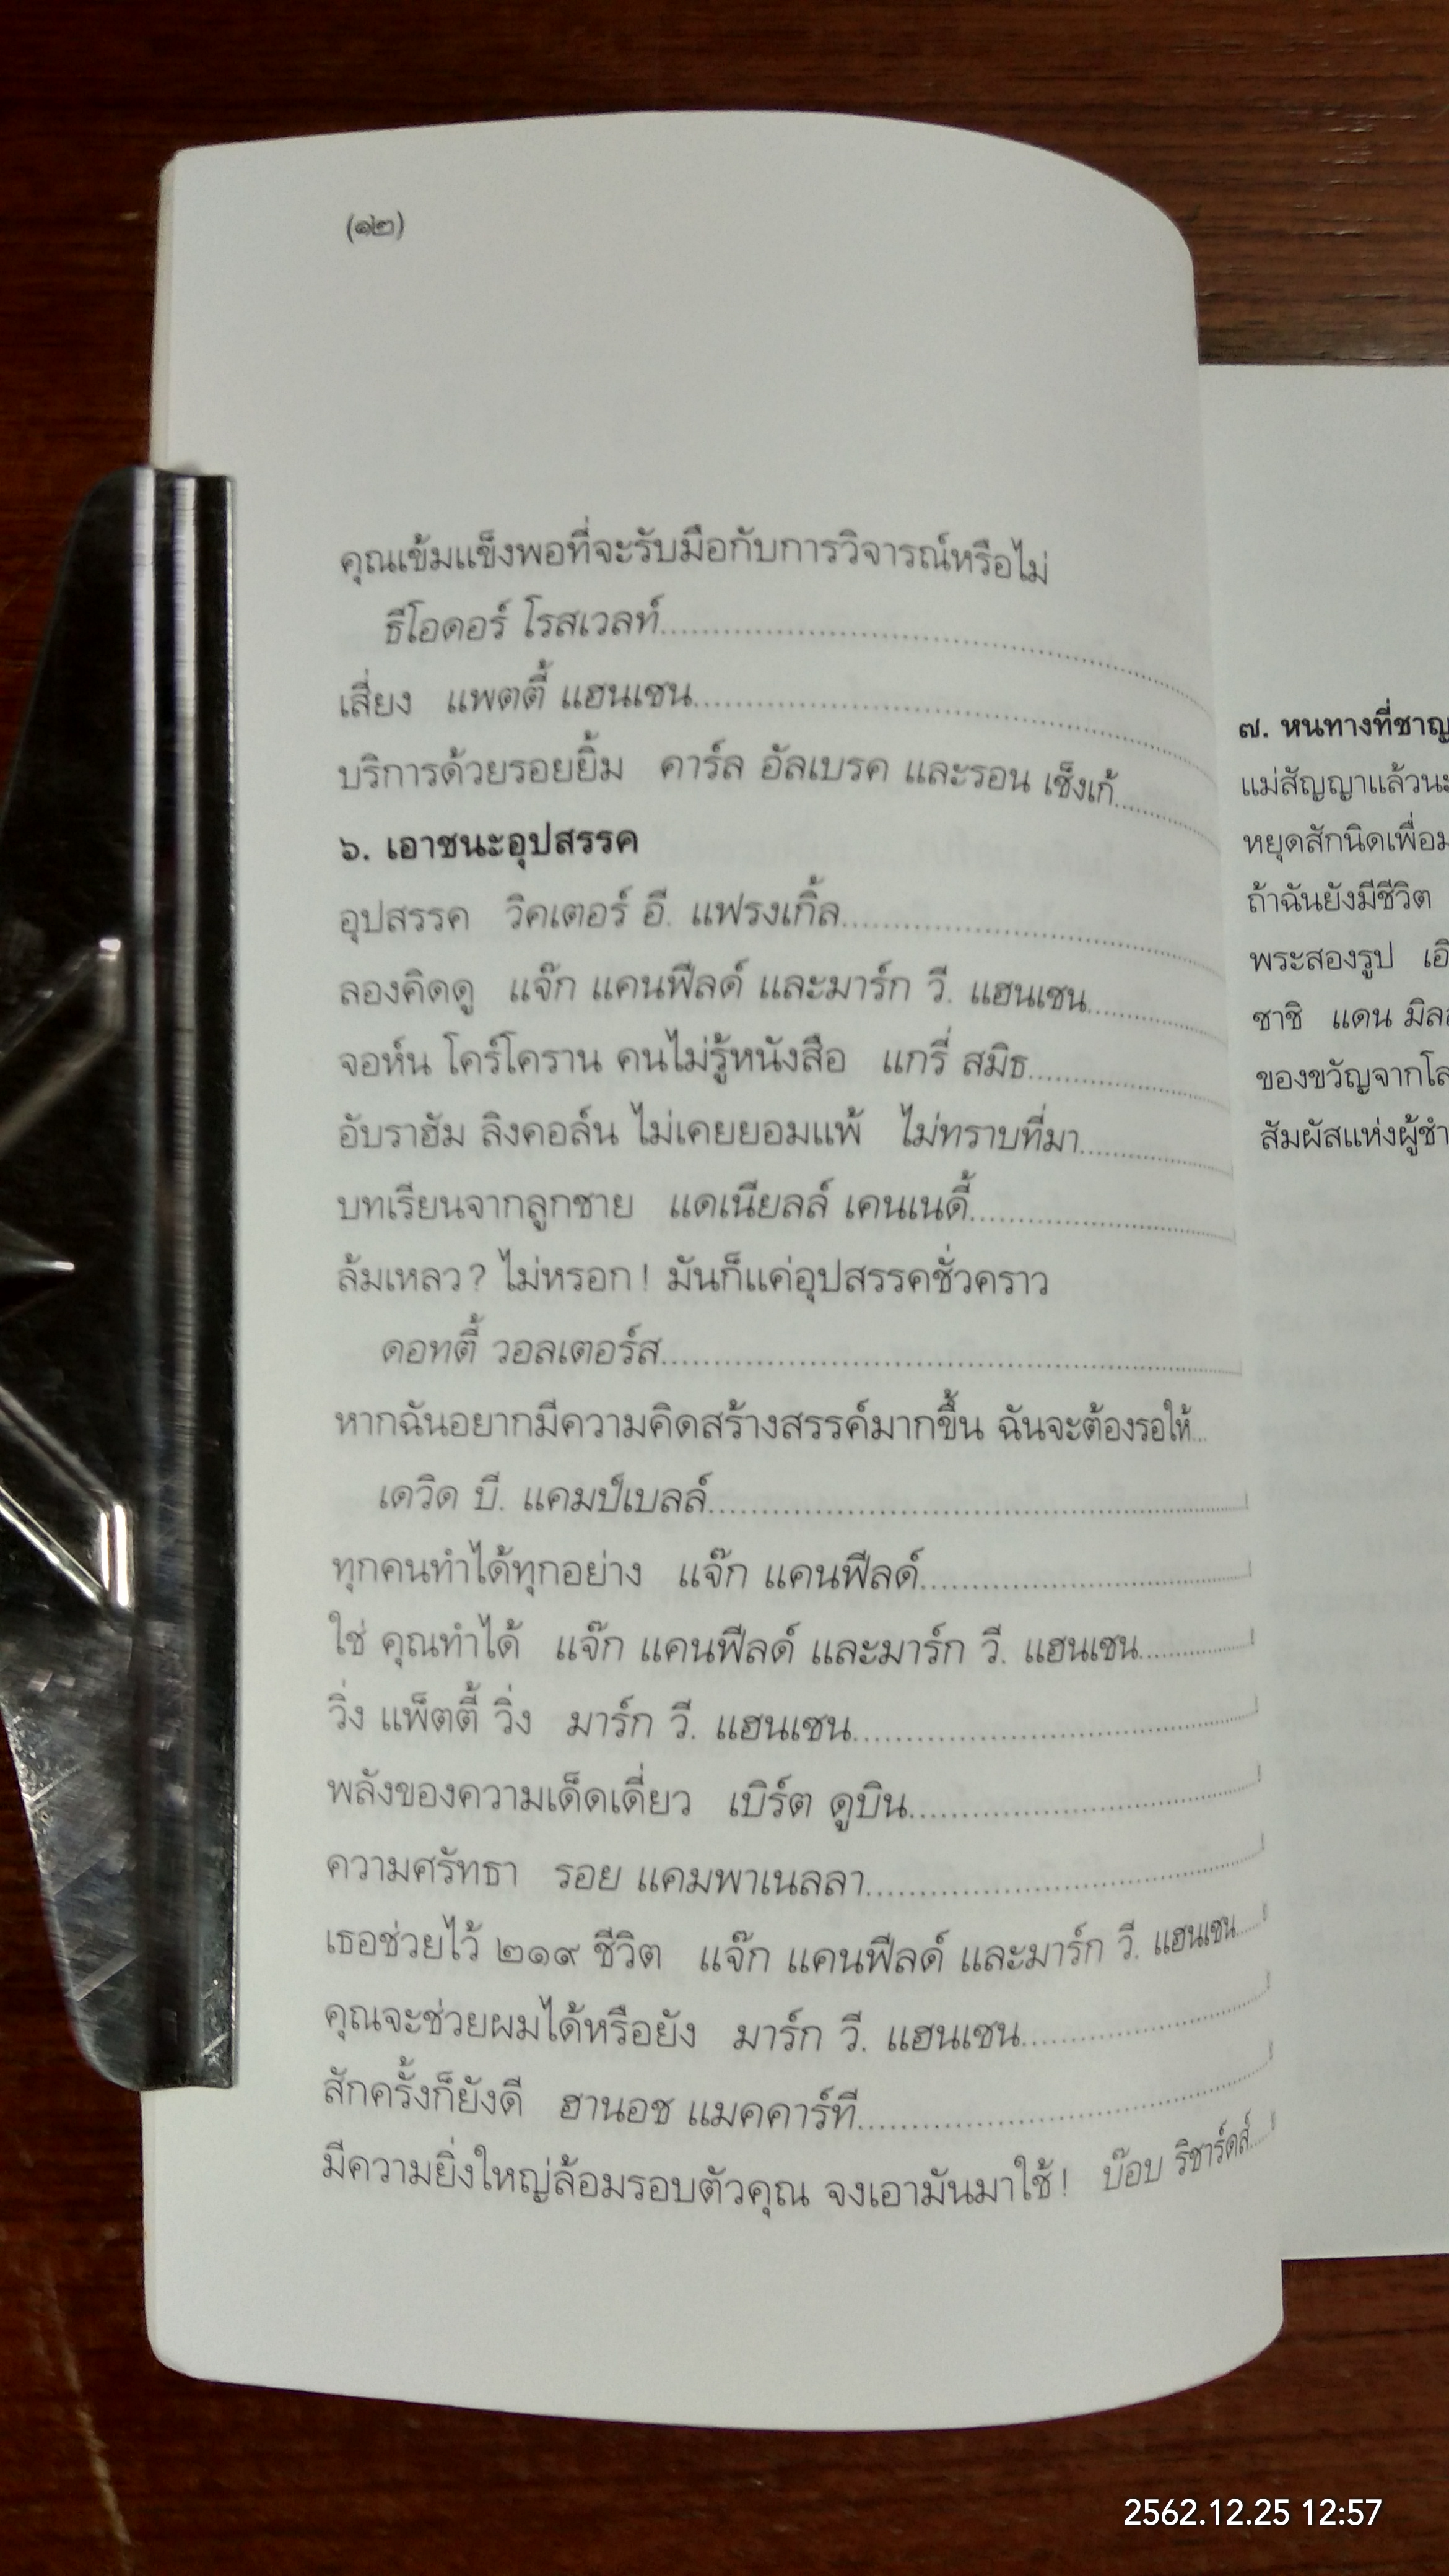 (๑๒)
คุณเข้มแข็งพอที่จะรับมือกับการวิจารณ์หรือไม่
ธีโอดอร์ โรสเวลท์
เสี่ยง แพตตี้ แฮนเซน
บริการด้วยรอยยิ้ม คาร์ล อัลเบรค และรอน เซ็งเก้
๖. เอาชนะอุปสรรค
อุปสรรค วิคเตอร์ อี. แฟรงเกิ้ล
ลองคิดดู แจ๊ก แคนฟีลด์ และมาร์ก วี. แฮนเซน
จอห์น โคร์โคราน คนไม่รู้หนังสือ แกรี่ สมิธ
อับราฮัม ลิงคอล์น ไม่เคยยอมแพ้ ไม่ทราบที่มา
บทเรียนจากลูกชาย แดเนียลล์ เคนเนดี้
ล้มเหลว? ไม่หรอก! มันก็แค่อุปสรรคชั่วคราว
ดอทตี้ วอลเตอร์ส
หากฉันอยากมีความคิดสร้างสรรค์มากขึ้น ฉันจะต้องรอให้...
เดวิด บี. แคมป์เบลล์
ทุกคนทำได้ทุกอย่าง แจ๊ก แคนฟีลด์
ใช่ คุณทำได้ แจ๊ก แคนฟีลด์ และมาร์ก วี. แฮนเซน
วิ่ง แพ็ตตี้ วิ่ง มาร์ก วี. แฮนเซน
พลังของความเด็ดเดี่ยว เบิร์ต ดูบิน
ความศรัทธา รอย แคมพาเนลลา
เธอช่วยไว้ ๒๑๙ ชีวิต แจ๊ก แคนฟีลด์ และมาร์ก วี. แฮนเซน
คุณจะช่วยผมได้หรือยัง มาร์ก วี. แฮนเซน
สักครั้งก็ยังดี ฮานอช แมคคาร์ที
มีความยิ่งใหญ่ล้อมรอบตัวคุณ จงเอามันมาใช้! บ๊อบ ริชาร์ดส์
๗. หนทางที่ชาญ
แม่สัญญาแล้วนะ
หยุดสักนิดเพื่อม
ถ้าฉันยังมีชีวิต
พระสองรูป เอิ
ซาชิ แดน มิล
ของขวัญจากโล
สัมผัสแห่งผู้ชำ
2562.12.25 12:57